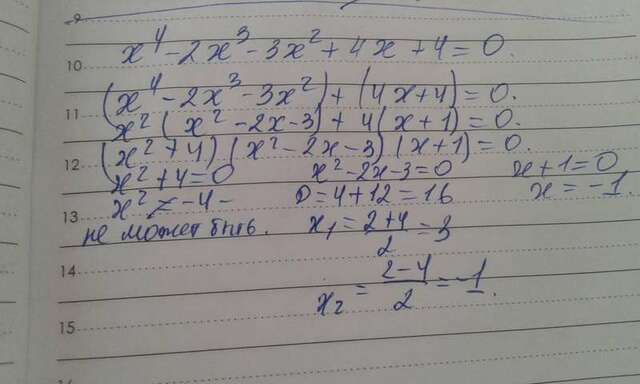 9
x⁴-2x³-3x²+4x+4=0.
10
(x⁴-2x³-3x²)+(4x+4)=0.
11
x²(x²-2x-3)+4(x+1)=0.
12
(x²+4)(x²-2x-3)(x+1)=0.
x²+4=0 x²-2x-3=0 x+1=0
13
x²≠-4- D=4+12=16 x=-1.
не может быть. x₁=(2+4)/2=3
14
x₂=(2-4)/2=-1.
15